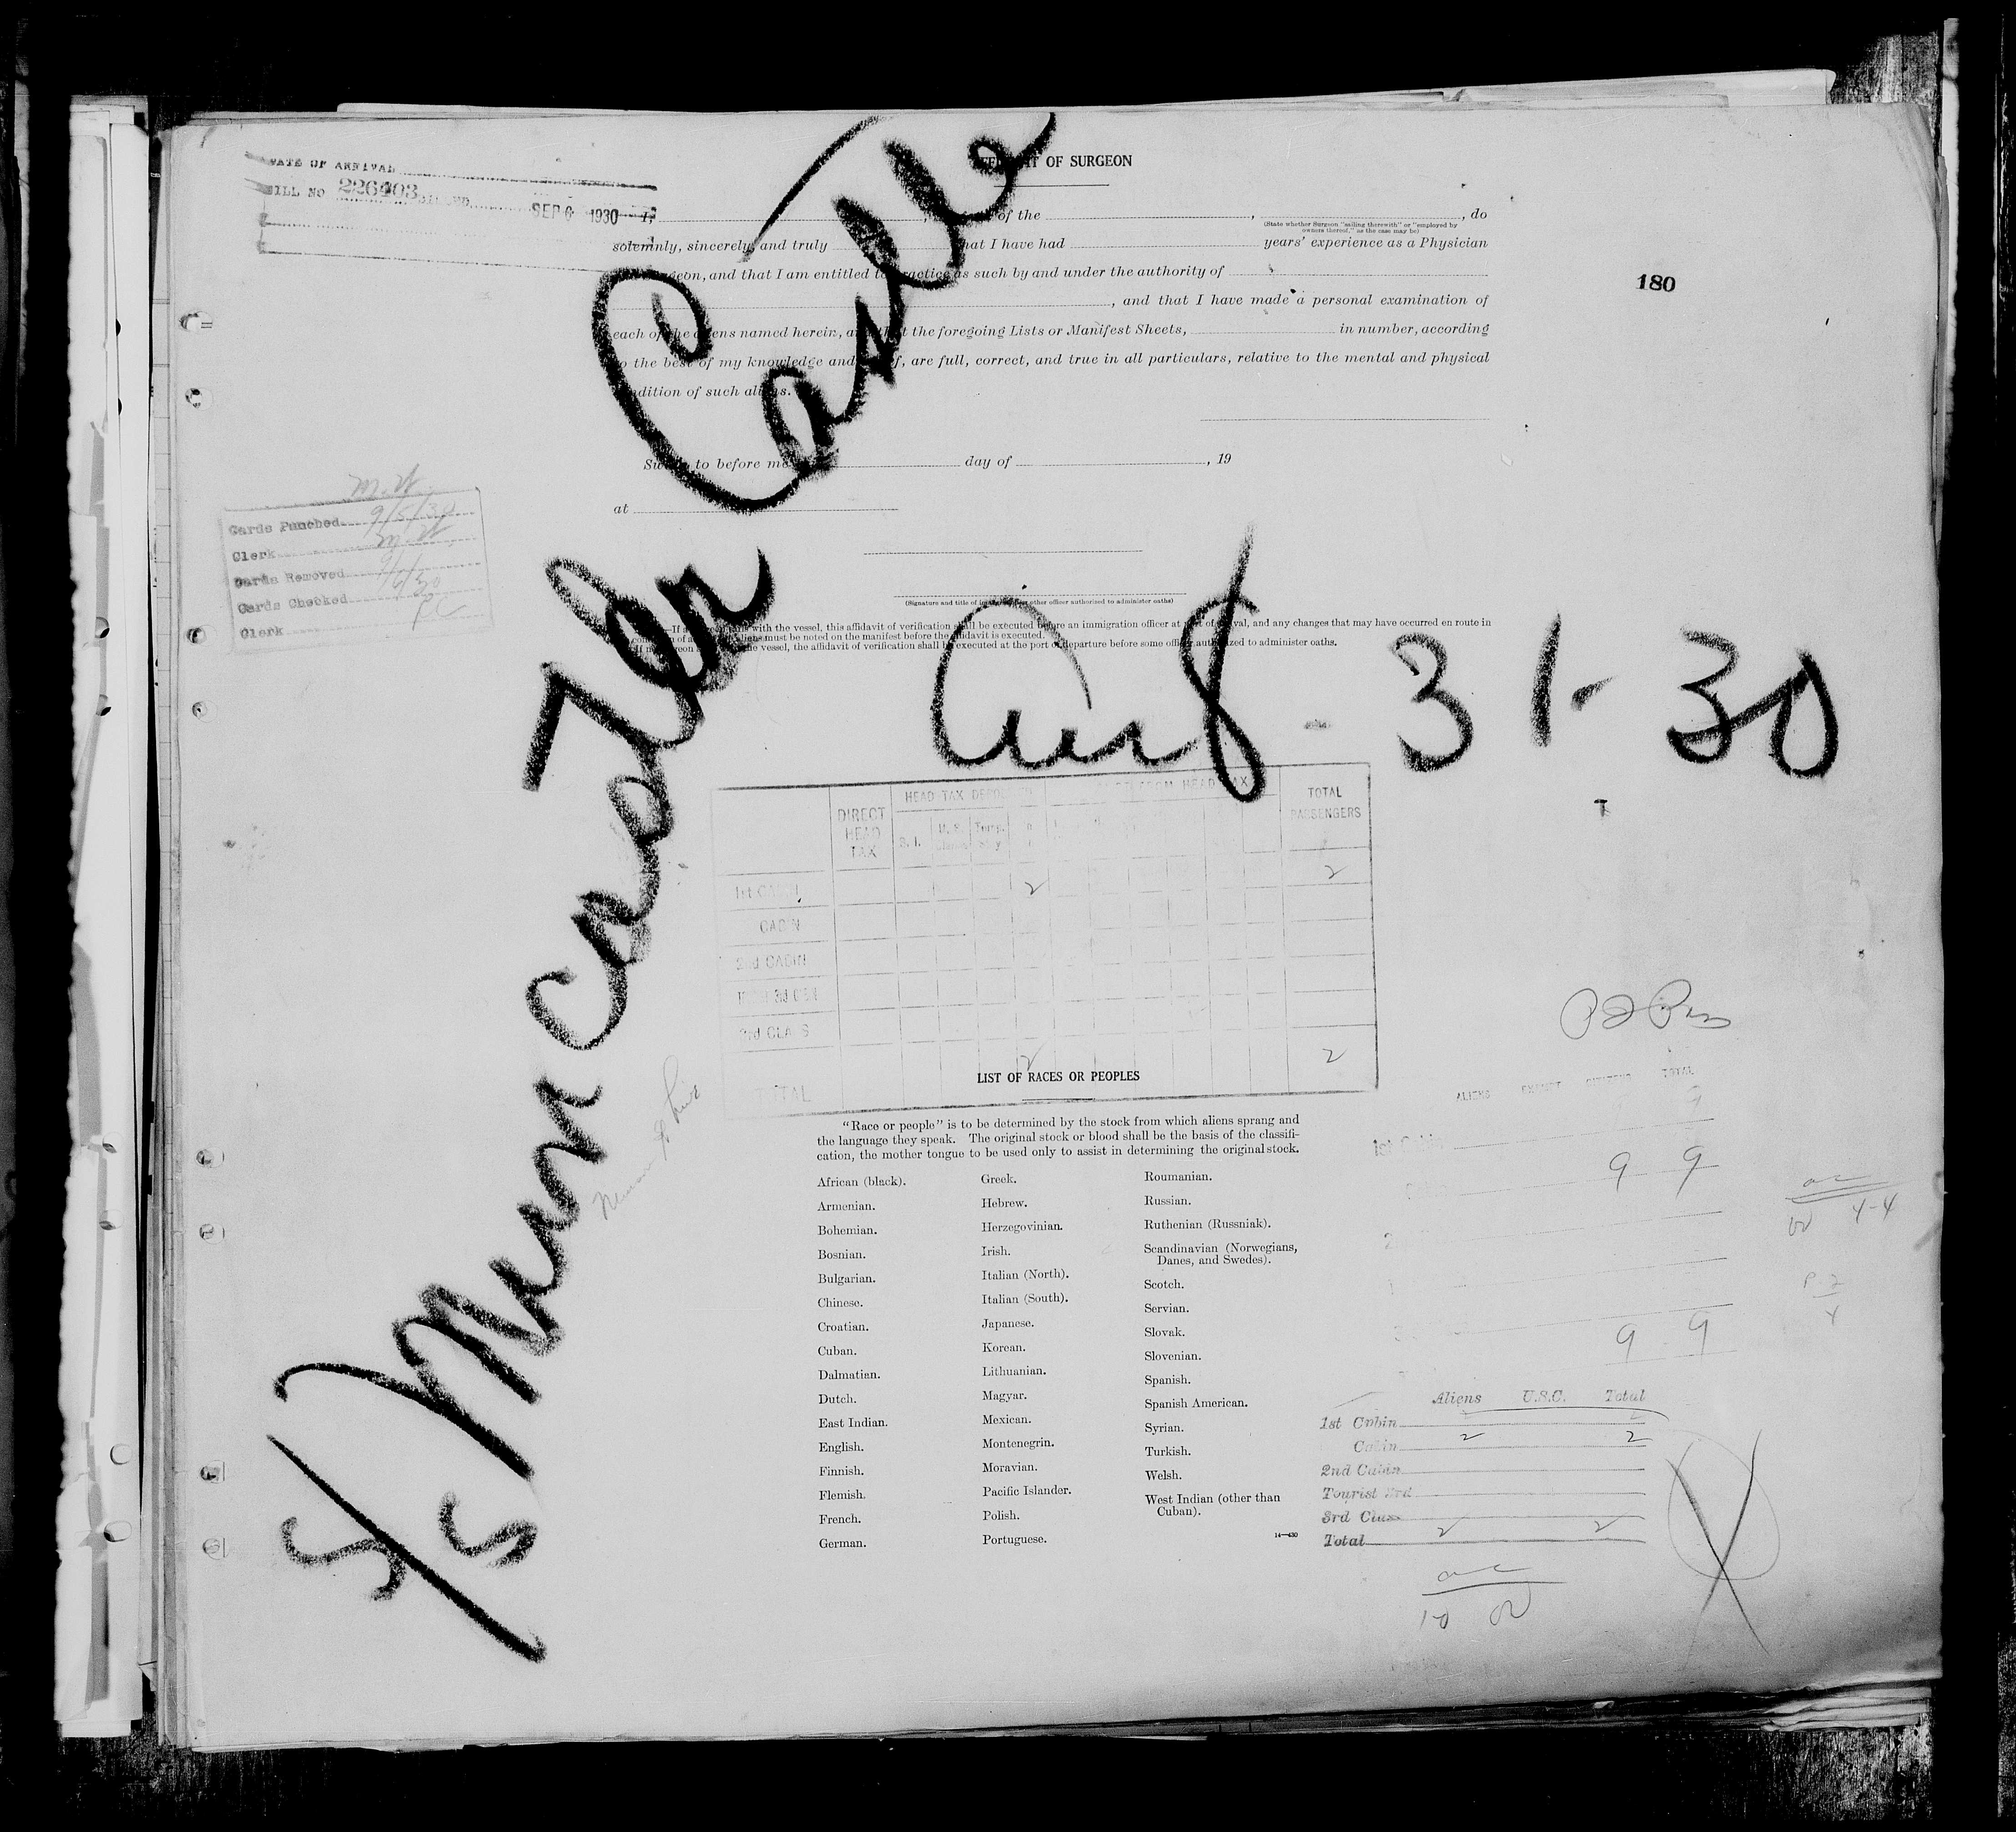 DATE OF ARRIVAL
BILL NO 226403 SEP 6 1930
AFFIDAVIT OF SURGEON
I, of the , , do
(State whether Surgeon "sailing therewith" or "employed by
owners thereof," as the case may be)
solemnly, sincerely, and truly that I have had years' experience as a Physician
, and that I am entitled to practice as such by and under the authority of
, and that I have made a personal examination of
each of the aliens named herein, and that the foregoing Lists or Manifest Sheets, in number, according
to the best of my knowledge and belief, are full, correct, and true in all particulars, relative to the mental and physical
condition of such aliens.
180
Sworn to before me day of , 19
at
(Signature and title of immigration or other officer authorized to administer oaths)
with the vessel, this affidavit of verification shall be executed before an immigration officer at port of arrival, and any changes that may have occurred en route in
condition of aliens must be noted on the manifest before the affidavit is executed.
vessel, the affidavit of verification shall be executed at the port of departure before some officer authorized to administer oaths.
M.N.
Cards Punched 9/5/30
Clerk M.N.
Cards Removed
Cards Checked 9/6/30
Clerk
S/S Muncaster Castle
Aug - 31-30
DIRECT HEAD TAX
HEAD TAX
HEAD TAX
TOTAL PASSENGERS
1st CABIN 2 2
CABIN
2nd CABIN
3rd CLASS
TOTAL 2 2
LIST OF RACES OR PEOPLES
"Race or people" is to be determined by the stock from which aliens sprang and
the language they speak. The original stock or blood shall be the basis of the classifi-
cation, the mother tongue to be used only to assist in determining the original stock.
African (black).
Armenian.
Bohemian.
Bosnian.
Bulgarian.
Chinese.
Croatian.
Cuban.
Dalmatian.
Dutch.
East Indian.
English.
Finnish.
Flemish.
French.
German.
Greek.
Hebrew.
Herzegovinian.
Irish.
Italian (North).
Italian (South).
Japanese.
Korean.
Lithuanian.
Magyar.
Mexican.
Montenegrin.
Moravian.
Pacific Islander.
Polish.
Portuguese.
Roumanian.
Russian.
Ruthenian (Russniak).
Scandinavian (Norwegians,
Danes, and Swedes).
Scotch.
Servian.
Slovak.
Slovenian.
Spanish.
Spanish American.
Syrian.
Turkish.
Welsh.
West Indian (other than
Cuban).
14—430
ALIENS EXEMPT CITIZENS TOTAL
9 9
9 9
4-4
Aliens U.S.C. Total
1st Cabin
Cabin 2 2
2nd Cabin
Tourist 3rd
3rd Class
Total 2 2